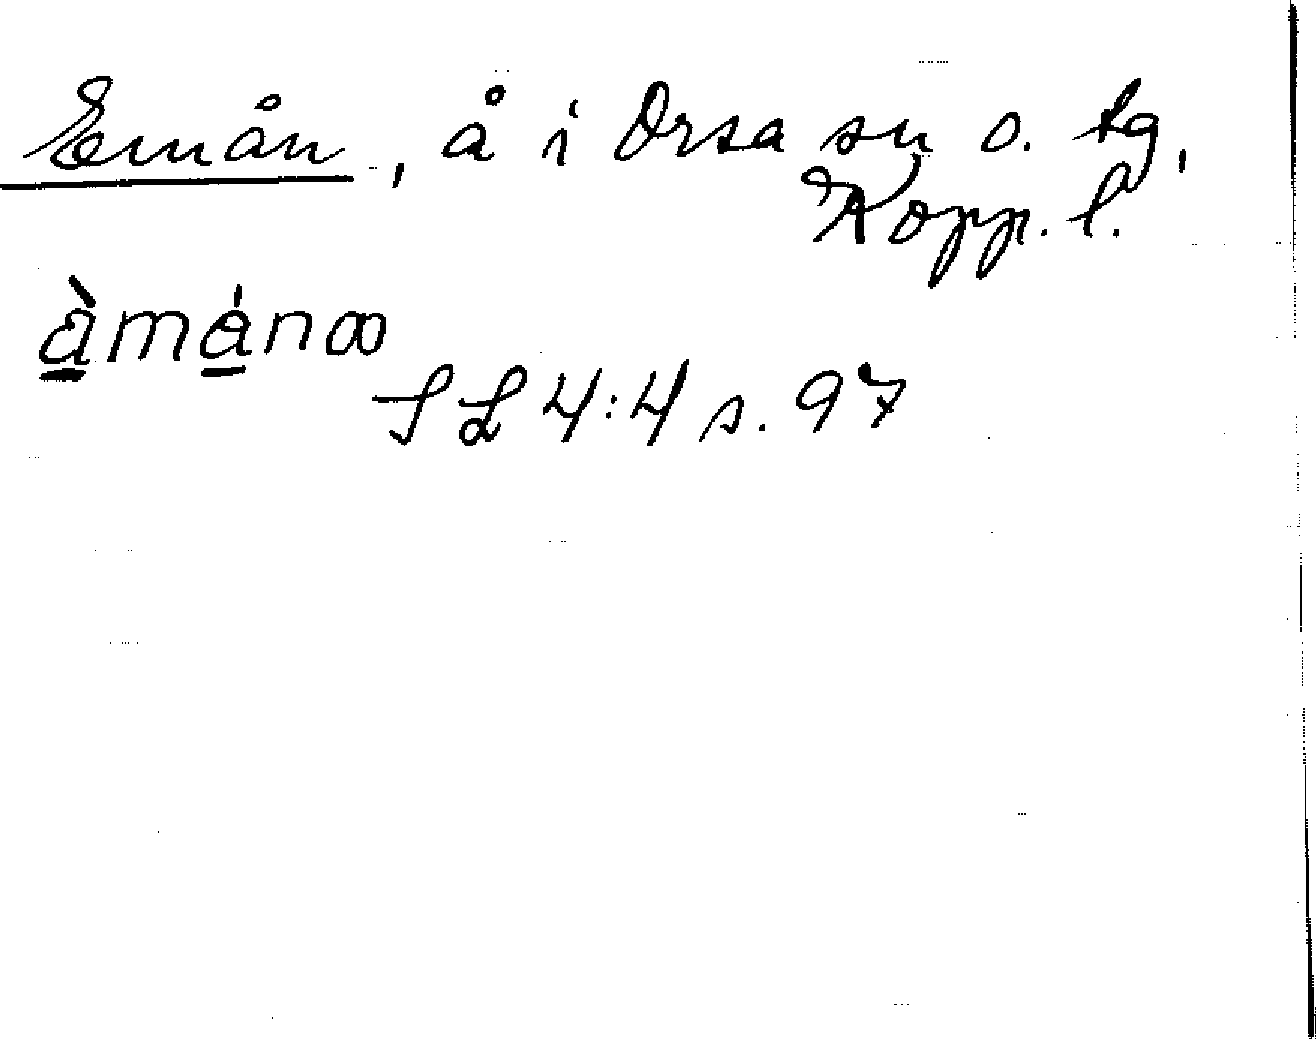 Emån, å i Orsa sn o. tg,
Kopp. l.
àmánꝏ
SL 4:4 s. 97